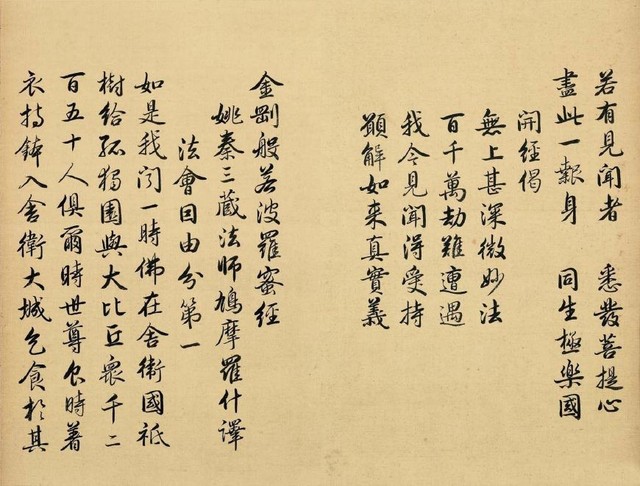 若有見聞者 悉發菩提心
盡此一報身 同生極樂國
開經偈
無上甚深微妙法
百千萬劫難遭遇
我今見聞得受持
願解如来真實義
金剛般若波羅蜜經
姚秦三藏法師鳩摩羅什譯
法會因由分第一
如是我闻一時佛在舍衛國祇
樹給孤獨園與大比丘眾千二
百五十人俱爾時世尊食時著
衣持鉢入舍衛大城乞食於其